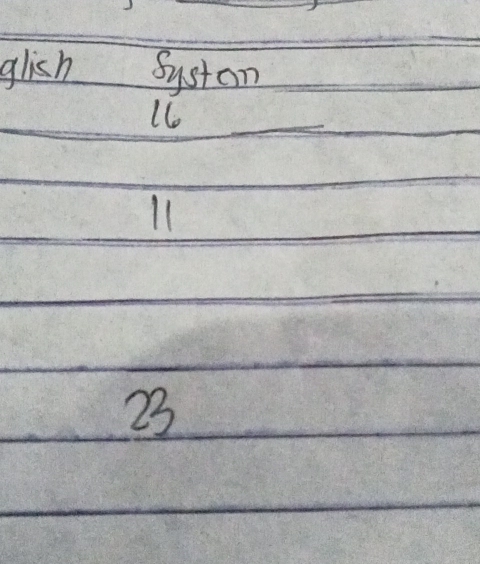 glish System
16
11
23